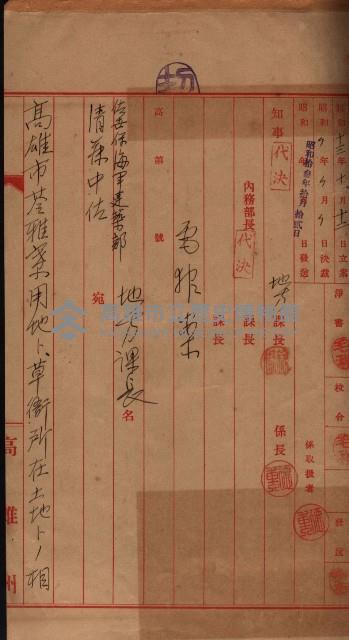 昭和十三年十月十二日立案
昭和 年 月 日決裁
昭和拾参年拾月拾貳日
日發送
淨書
校合
發送
知事 代決
地方課長
係長
係取扱者
內務部長 代決
課長
課長
高第 號
電報案
佐世保海軍建築部
清
中佐
宛
地方課長
名
高雄市苓雅寮用地ト、草衙所在土地トノ相
高雄州
高雄市立歷史博物館